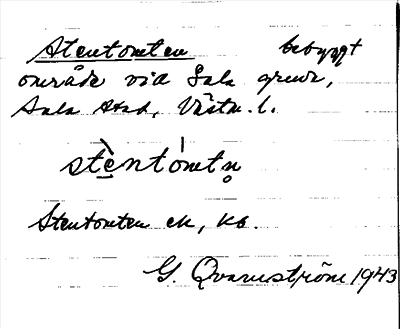 Stentomten bebyggt
område vid Sala gruva,
Sala stad, Västm. l.
stèntómtn̥
Stentomten ek, kb.
G. Qvarnström 1943